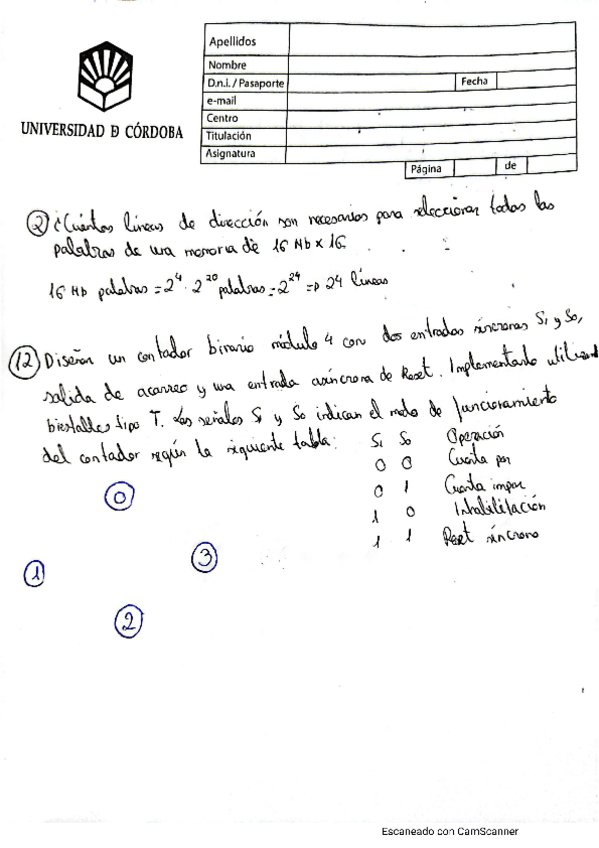 Apellidos
Nombre
D.n.i./Pasaporte
Fecha
e-mail
Centro
Titulación
Asignatura
Página
de
UNIVERSIDAD D CÓRDOBA
② ¿Cuántas líneas de dirección son necesarias para seleccionar todas las
palabras de una memoria de 16 Mb x 16.
16 Mb palabras = 2^4 · 2^20 palabras = 2^24 => 24 líneas
⑫ Diseñar un contador binario módulo 4 con dos entradas síncronas S1 y S0,
salida de acarreo y una entrada asíncrona de Reset. Implementarlo utilizand
biestables tipo T. Las señales S1 y S0 indican el modo de funcionamiento
del contador según la siguiente tabla:
S1 S0 Operación
0 0 Cuenta par
0 1 Cuenta impar
1 0 Inhabilitación
1 1 Reset síncrono
⓪
③
①
②
Escaneado con CamScanner